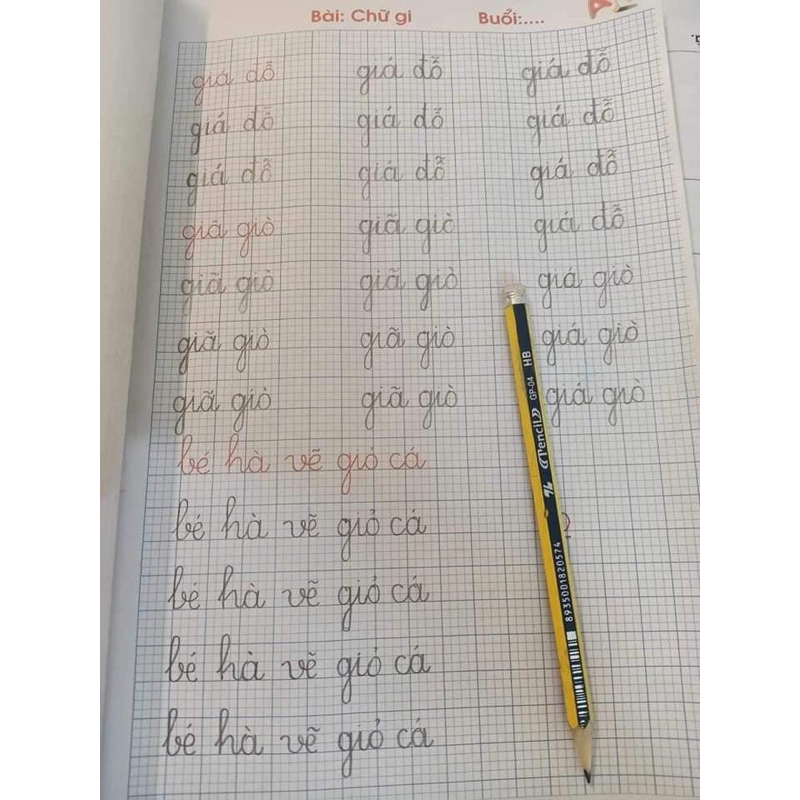 Bài: Chữ gi Buổi:....
giá đỗ giá đỗ giá đỗ
giá đỗ giá đỗ giá đỗ
giá đỗ giá đỗ giá đỗ
giã giò giã giò giá đỗ
giã giò giã giò giá giò
giã giò giã giò giá giò
giã giò giã giò giá giò
bé hà vẽ giỏ cá
bé hà vẽ giỏ cá
bé hà vẽ giỏ cá
bé hà vẽ giỏ cá
bé hà vẽ giỏ cá
Pencil GP-04 HB
8935001820574